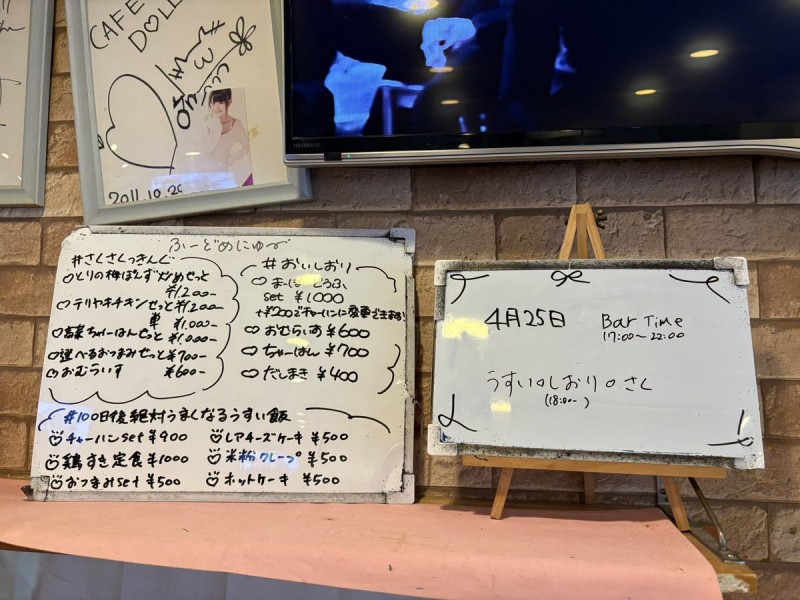 CAFE
DOLL
2011.10.20
ふーどめにゅー
#さくさくっきんぐ
とりの梅ぽんず炒めせっと
¥1,200-
テリヤキチキンせっと ¥1,200-
単 ¥1,000-
高菜ちゃーはんせっと ¥1,000-
選べるおつまみせっと ¥700-
おむらいす ¥600-
#おいしおり
set ¥1000
+¥200でチャーハンに変更できます!
おむらいす ¥600
ちゃーはん ¥700
だしまき ¥400
#100日後絶対うまくなるうすい飯
チャーハンset ¥900
鶏すき定食 ¥1000
おつまみset ¥500
レアチーズケーキ ¥500
米粉クレープ ¥500
ホットケーキ ¥500
4月25日
Bar Time
17:00〜22:00
うすい しおり さく
(18:00〜)